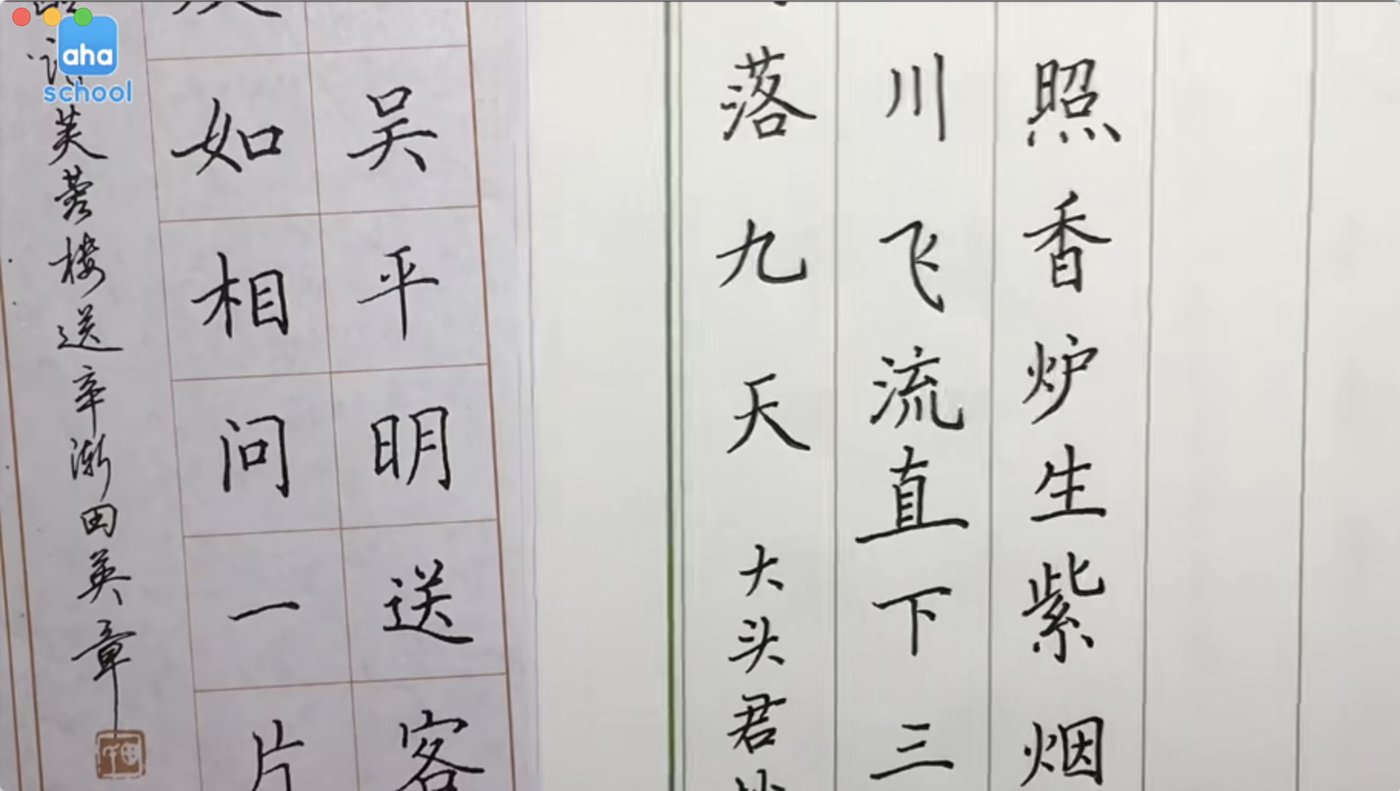 aha
school
照香炉生紫烟
川飞流直下三
落九天
大头君
吴平明送客
如相问一片
芙蓉楼送辛渐田英章